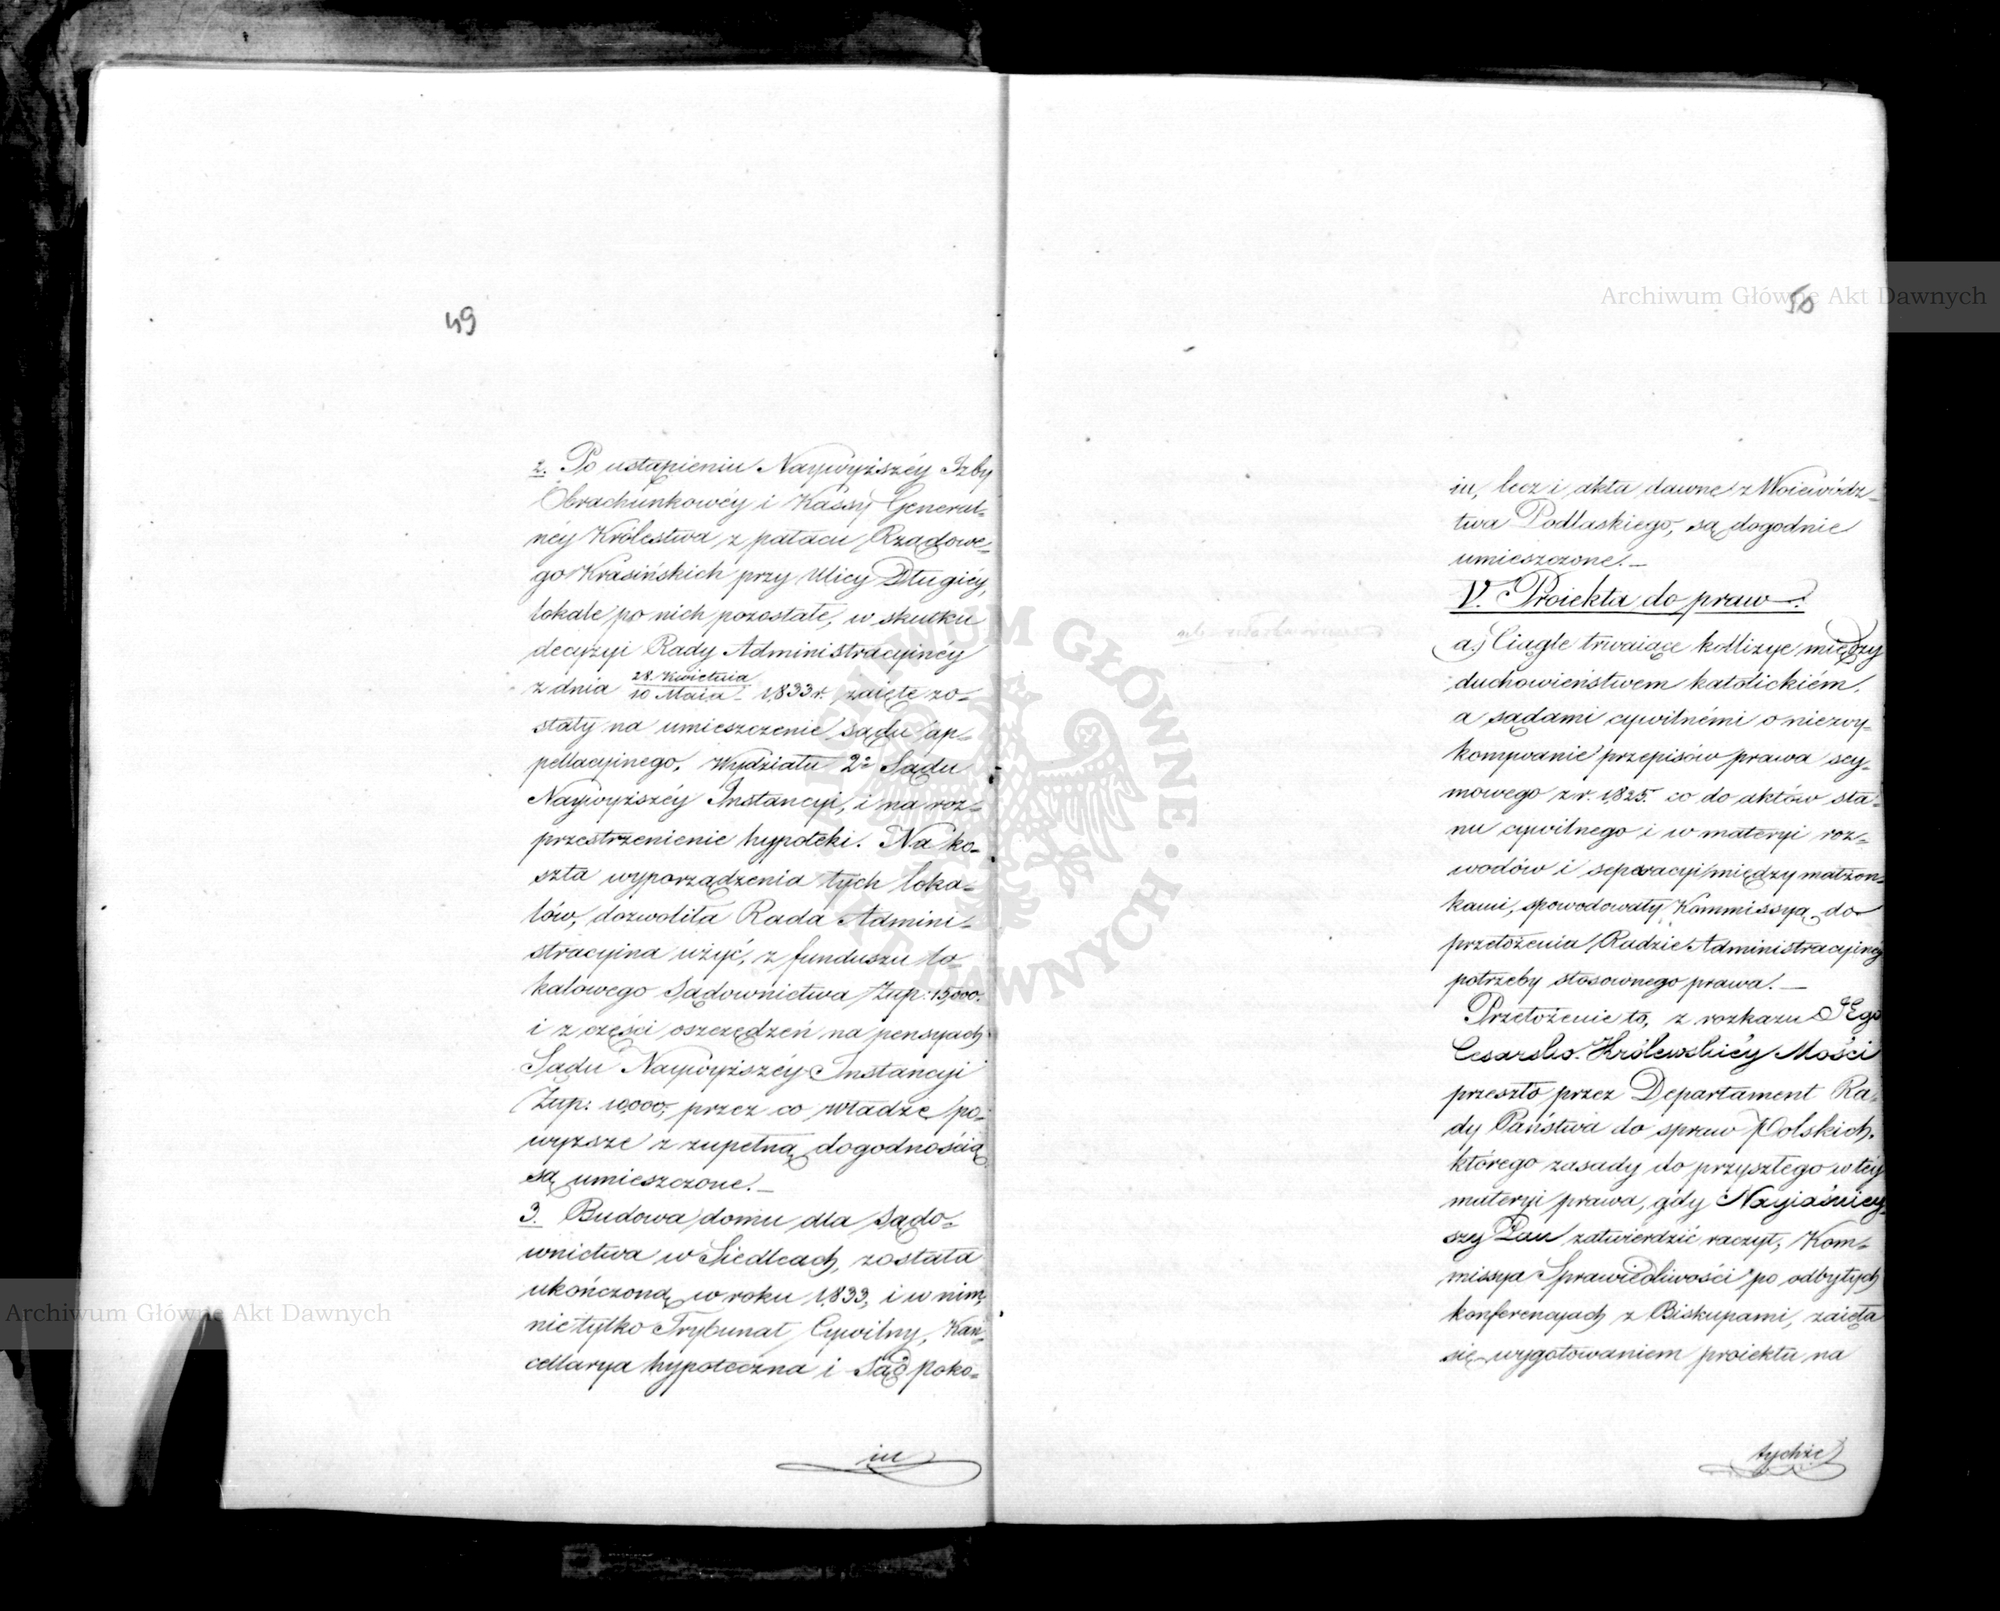 49
2. Po ustąpieniu Naywyższéy Izby
Obrachunkowéy i Kassy General-
néy Królestwa z pałacu Rządowe-
go Krasińskich przy Ulicy Długiéy,
lokale po nich pozostałe, w skutku
decyzyi Rady Administracyinéy
z dnia 28. Kwietnia / 10 Maia 1833 r. zaięte zo-
stały na umieszczenie sądu ap-
pellacyinego, Wydziału 2o Sądu
Naywyższéy Instancyi, i na roz-
przestrzenienie hypoteki. Na ko-
szta wyporządzenia tych loka-
lów, dozwoliła Rada Admini-
stracyina użyć, z funduszu lo-
kalowego Sądownictwa Złup: 15,000.
i z części oszczędzeń na pensyach
Sądu Naywyższéy Instancyi
Złup: 10,000, przez co władze po-
wyższe z zupełną dogodnością
są umieszczone.—
3. Budowa domu dla Sądo-
wnictwa w Siedlcach, została
ukończoną w roku 1833, i w nim,
nietylko Trybunał Cywilny, Kan-
cellarya hypoteczna i Sąd Poko-
iu
50
iu, lecz i akta dawne z Woiewódz-
twa Podlaskiego, są dogodnie
umieszczone.—
V. Proiekta do praw.
a.) Ciągle trwaiące kollizye między
duchowieństwem katolickiém,
a sądami cywilnémi o niewy-
konywanie przepisów prawa sey-
mowego z r. 1825. co do aktów sta-
nu cywilnego i w materyi roz-
wodów i separacyi między małżon-
kami, spowodowały Kommissyą do
przełożenia Radzie Administracyinéy
potrzeby stosownego prawa.—
Przełożenie to, z rozkazu JEgo
Cesarsko-Królewskiéy Mości
przeszło przez Departament Ra-
dy Państwa do spraw Polskich,
którego zasady do przyszłego w téy
materyi prawa, gdy Nayiaśniey-
szy Pan zatwierdzić raczył, Kom-
missya Sprawiedliwości po odbytych
konferencyach z Biskupami, zaięła
się wygotowaniem proiektu na
tychże
Archiwum Główne Akt Dawnych
Archiwum Główne Akt Dawnych
ARCHIWUM GŁÓWNE AKT DAWNYCH